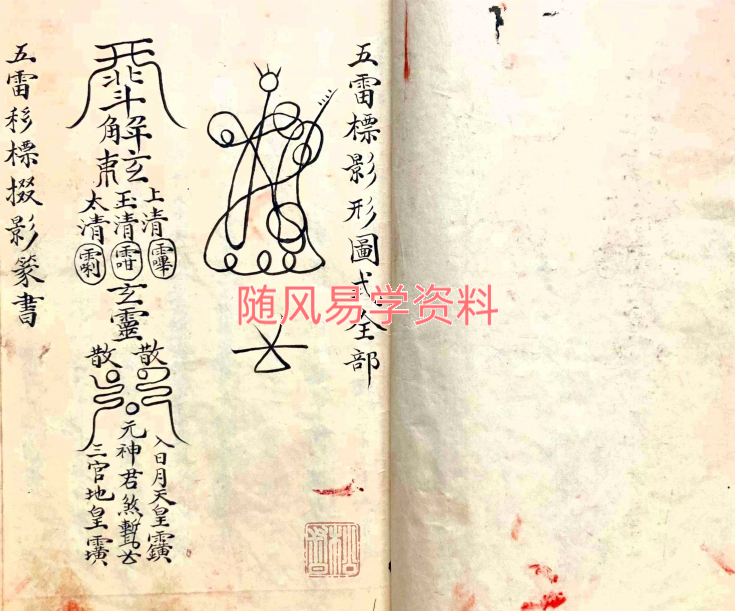 五雷標影形圖式全部
斗
解
東玄
上清
玉清
太清
玄
靈
散
散
入日月天皇
元神君煞暫
三官地皇
五雷移標掇影篆書
随风易学资料